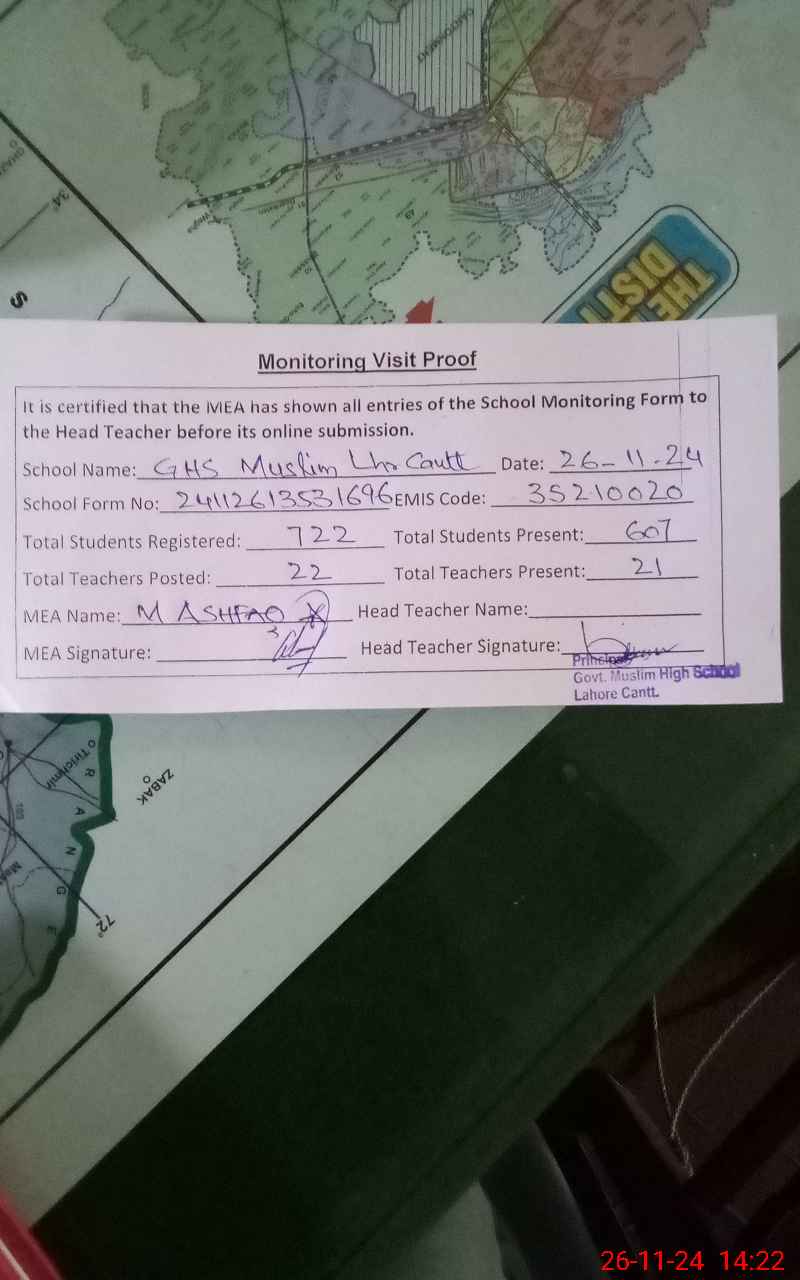 CANTONMENT
S
34°
THE
DIST
Monitoring Visit Proof
It is certified that the MEA has shown all entries of the School Monitoring Form to
the Head Teacher before its online submission.
School Name: GHS Muslim Lhr Cantt Date: 26-11-24
School Form No: 24112613531696 EMIS Code: 35210020
Total Students Registered: 722 Total Students Present: 607
Total Teachers Posted: 22 Total Teachers Present: 21
MEA Name: M ASHFAQ Head Teacher Name:
MEA Signature: Head Teacher Signature:
Principal
Govt. Muslim High School
Lahore Cantt.
Tirichmir
ZABAK
R A N G E
72°
26-11-24 14:22